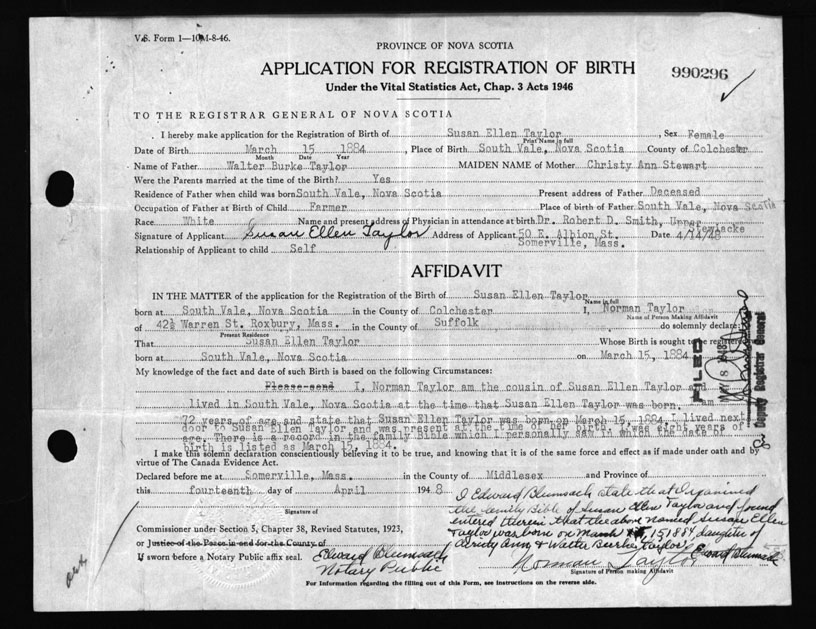 V.S. Form 1—10M-8-46.
PROVINCE OF NOVA SCOTIA
APPLICATION FOR REGISTRATION OF BIRTH
990296
Under the Vital Statistics Act, Chap. 3 Acts 1946
TO THE REGISTRAR GENERAL OF NOVA SCOTIA
I hereby make application for the Registration of Birth of Susan Ellen Taylor, Sex Female
Print Name in full
Date of Birth March 15 1884, Place of Birth South Vale, Nova Scotia County of Colchester
Month Date Year
Name of Father Walter Burke Taylor MAIDEN NAME of Mother Christy Ann Stewart
Were the Parents married at the time of the Birth? Yes
Residence of Father when child was born South Vale, Nova Scotia Present address of Father Deceased
Occupation of Father at Birth of Child Farmer Place of birth of Father South Vale, Nova Scotia
Race White Name and present address of Physician in attendance at birth Dr. Robert D. Smith, Upper Stewiacke
Signature of Applicant Susan Ellen Taylor Address of Applicant 50 E. Albion St. Somerville, Mass. Date 4/14/48
Relationship of Applicant to child Self
AFFIDAVIT
IN THE MATTER of the application for the Registration of the Birth of Susan Ellen Taylor
Name in full
born at South Vale, Nova Scotia in the County of Colchester I, Norman Taylor
Name of Person Making Affidavit
of 42½ Warren St. Roxbury, Mass. in the County of Suffolk do solemnly declare:
Present Residence
That Susan Ellen Taylor Whose Birth is sought to be registered
born at South Vale, Nova Scotia on March 15, 1884
My knowledge of the fact and date of such Birth is based on the following Circumstances:
Please send I, Norman Taylor am the cousin of Susan Ellen Taylor and
lived in South Vale, Nova Scotia at the time that Susan Ellen Taylor was born. I am
72 years of age and state that Susan Ellen Taylor was born on March 15, 1884. I lived next
door to Susan Ellen Taylor and was present at the time of her birth. I was eight years of
age. There is a record in the family Bible which I personally saw in which the date of
birth is listed as March 15, 1884.
I make this solemn declaration conscientiously believing it to be true, and knowing that it is of the same force and effect as if made under oath and by
virtue of The Canada Evidence Act.
Declared before me at Somerville, Mass. in the County of Middlesex and Province of
this fourteenth day of April 1948
Signature of
I Edward Blumsack state that I examined
the family Bible of Susan Ellen Taylor and found
entered therein that the above named Susan Ellen
Taylor was born on March 15 1884, daughter of
Christy Ann & Walter Burke Taylor. Edward Blumsack
Commissioner under Section 5, Chapter 38, Revised Statutes, 1923,
or Justice of the Peace in and for the County of
If sworn before a Notary Public affix seal. Edward Blumsack
Notary Public
Norman Taylor
Signature of Person making Affidavit
For Information regarding the filling out of this Form, see instructions on the reverse side.
FILED
MAY 8 1948
Deputy Registrar General